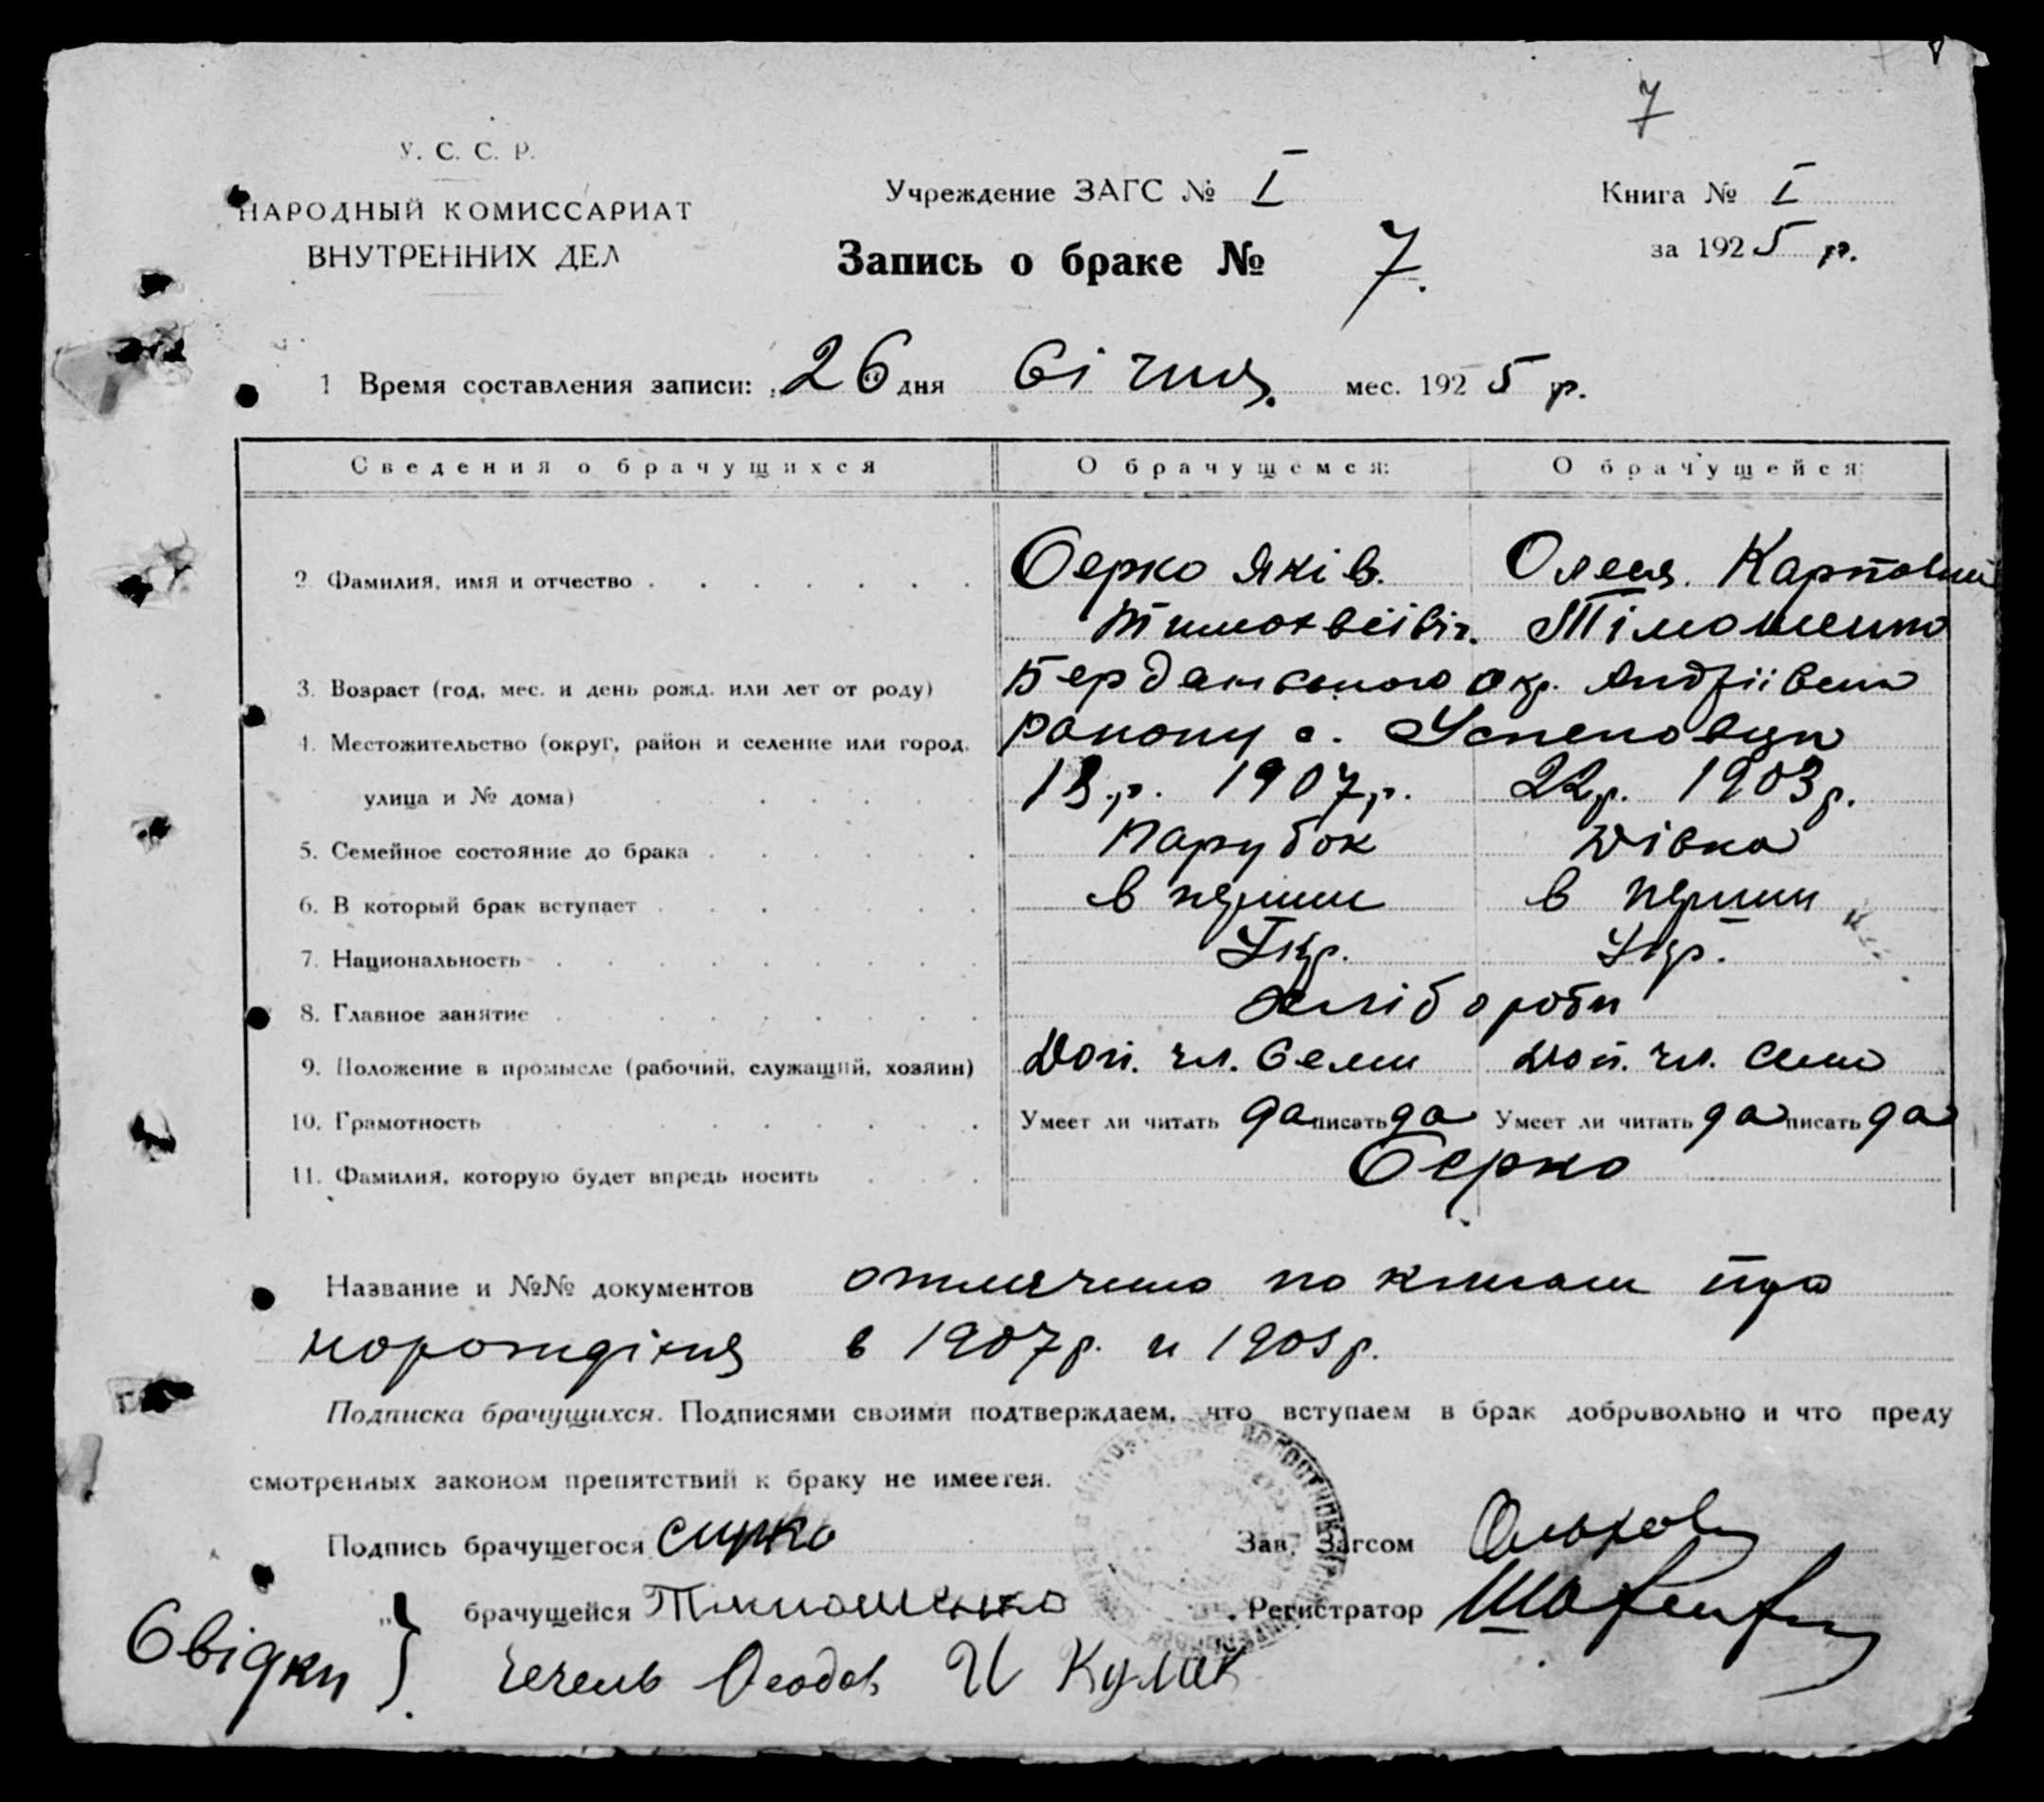 7
У. С. С. Р.
НАРОДНЫЙ КОМИССАРИАТ
ВНУТРЕННИХ ДЕЛ
Учреждение ЗАГС № I
Книга № I
за 1925 р.
Запись о браке № 7.
1 Время составления записи: „26“ дня Січня. мес. 1925 р.
Сведения о брачущихся О брачущемся: О брачущейся:
2. Фамилия, имя и отчество Серко Яків.
Тимохвеівіч. Тімошенко
3. Возраст (год, мес. и день рожд. или лет от роду) Бердянського окр.
4. Местожительство (округ, район и селение или город, району с.
улица и № дома) 18.р. 1907р. 22р. 1903р.
5. Семейное состояние до брака Парубок Дівка
6. В который брак вступает в перши в перши
7. Национальность Укр. Укр.
8. Главное занятие хліборобы
9. Положение в промысле (рабочий, служащий, хозяин) Доп. чл. Семи Доп. чл. Семи
10. Грамотность Умеет ли читать да писать да Умеет ли читать да писать да
11. Фамилия, которую будет впредь носить Серко
Название и №№ документов отмечено по книгам про
в 1907р. и 1903р.
Подписка брачущихся. Подписями своими подтверждаем, что вступаем в брак добровольно и что преду
смотренных законом препятствий к браку не имеется.
Подпись брачущегося Сирко Зав. Загсом
„ брачущейся Тимошенко Регистратор
Свідки } И Кулик